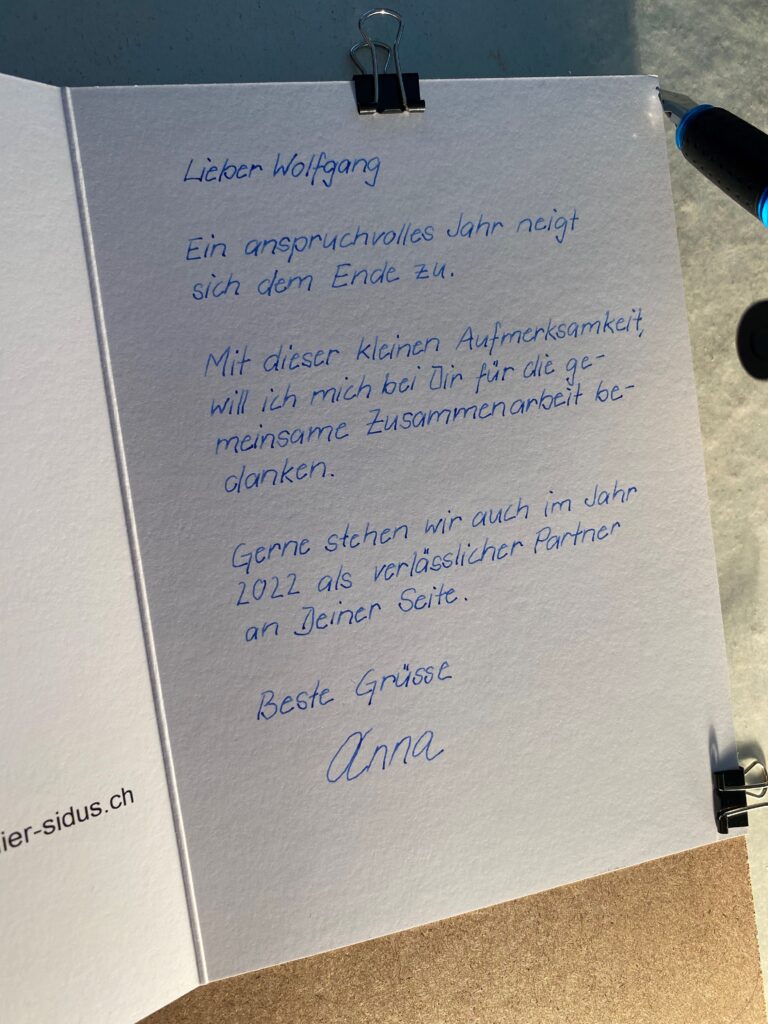 Lieber Wolfgang
Ein anspruchvolles Jahr neigt
sich dem Ende zu.
Mit dieser kleinen Aufmerksamkeit,
will ich mich bei Dir für die ge-
meinsame Zusammenarbeit be-
danken.
Gerne stehen wir auch im Jahr
2022 als verlässlicher Partner
an Deiner Seite.
Beste Grüsse
Anna
ier-sidus.ch